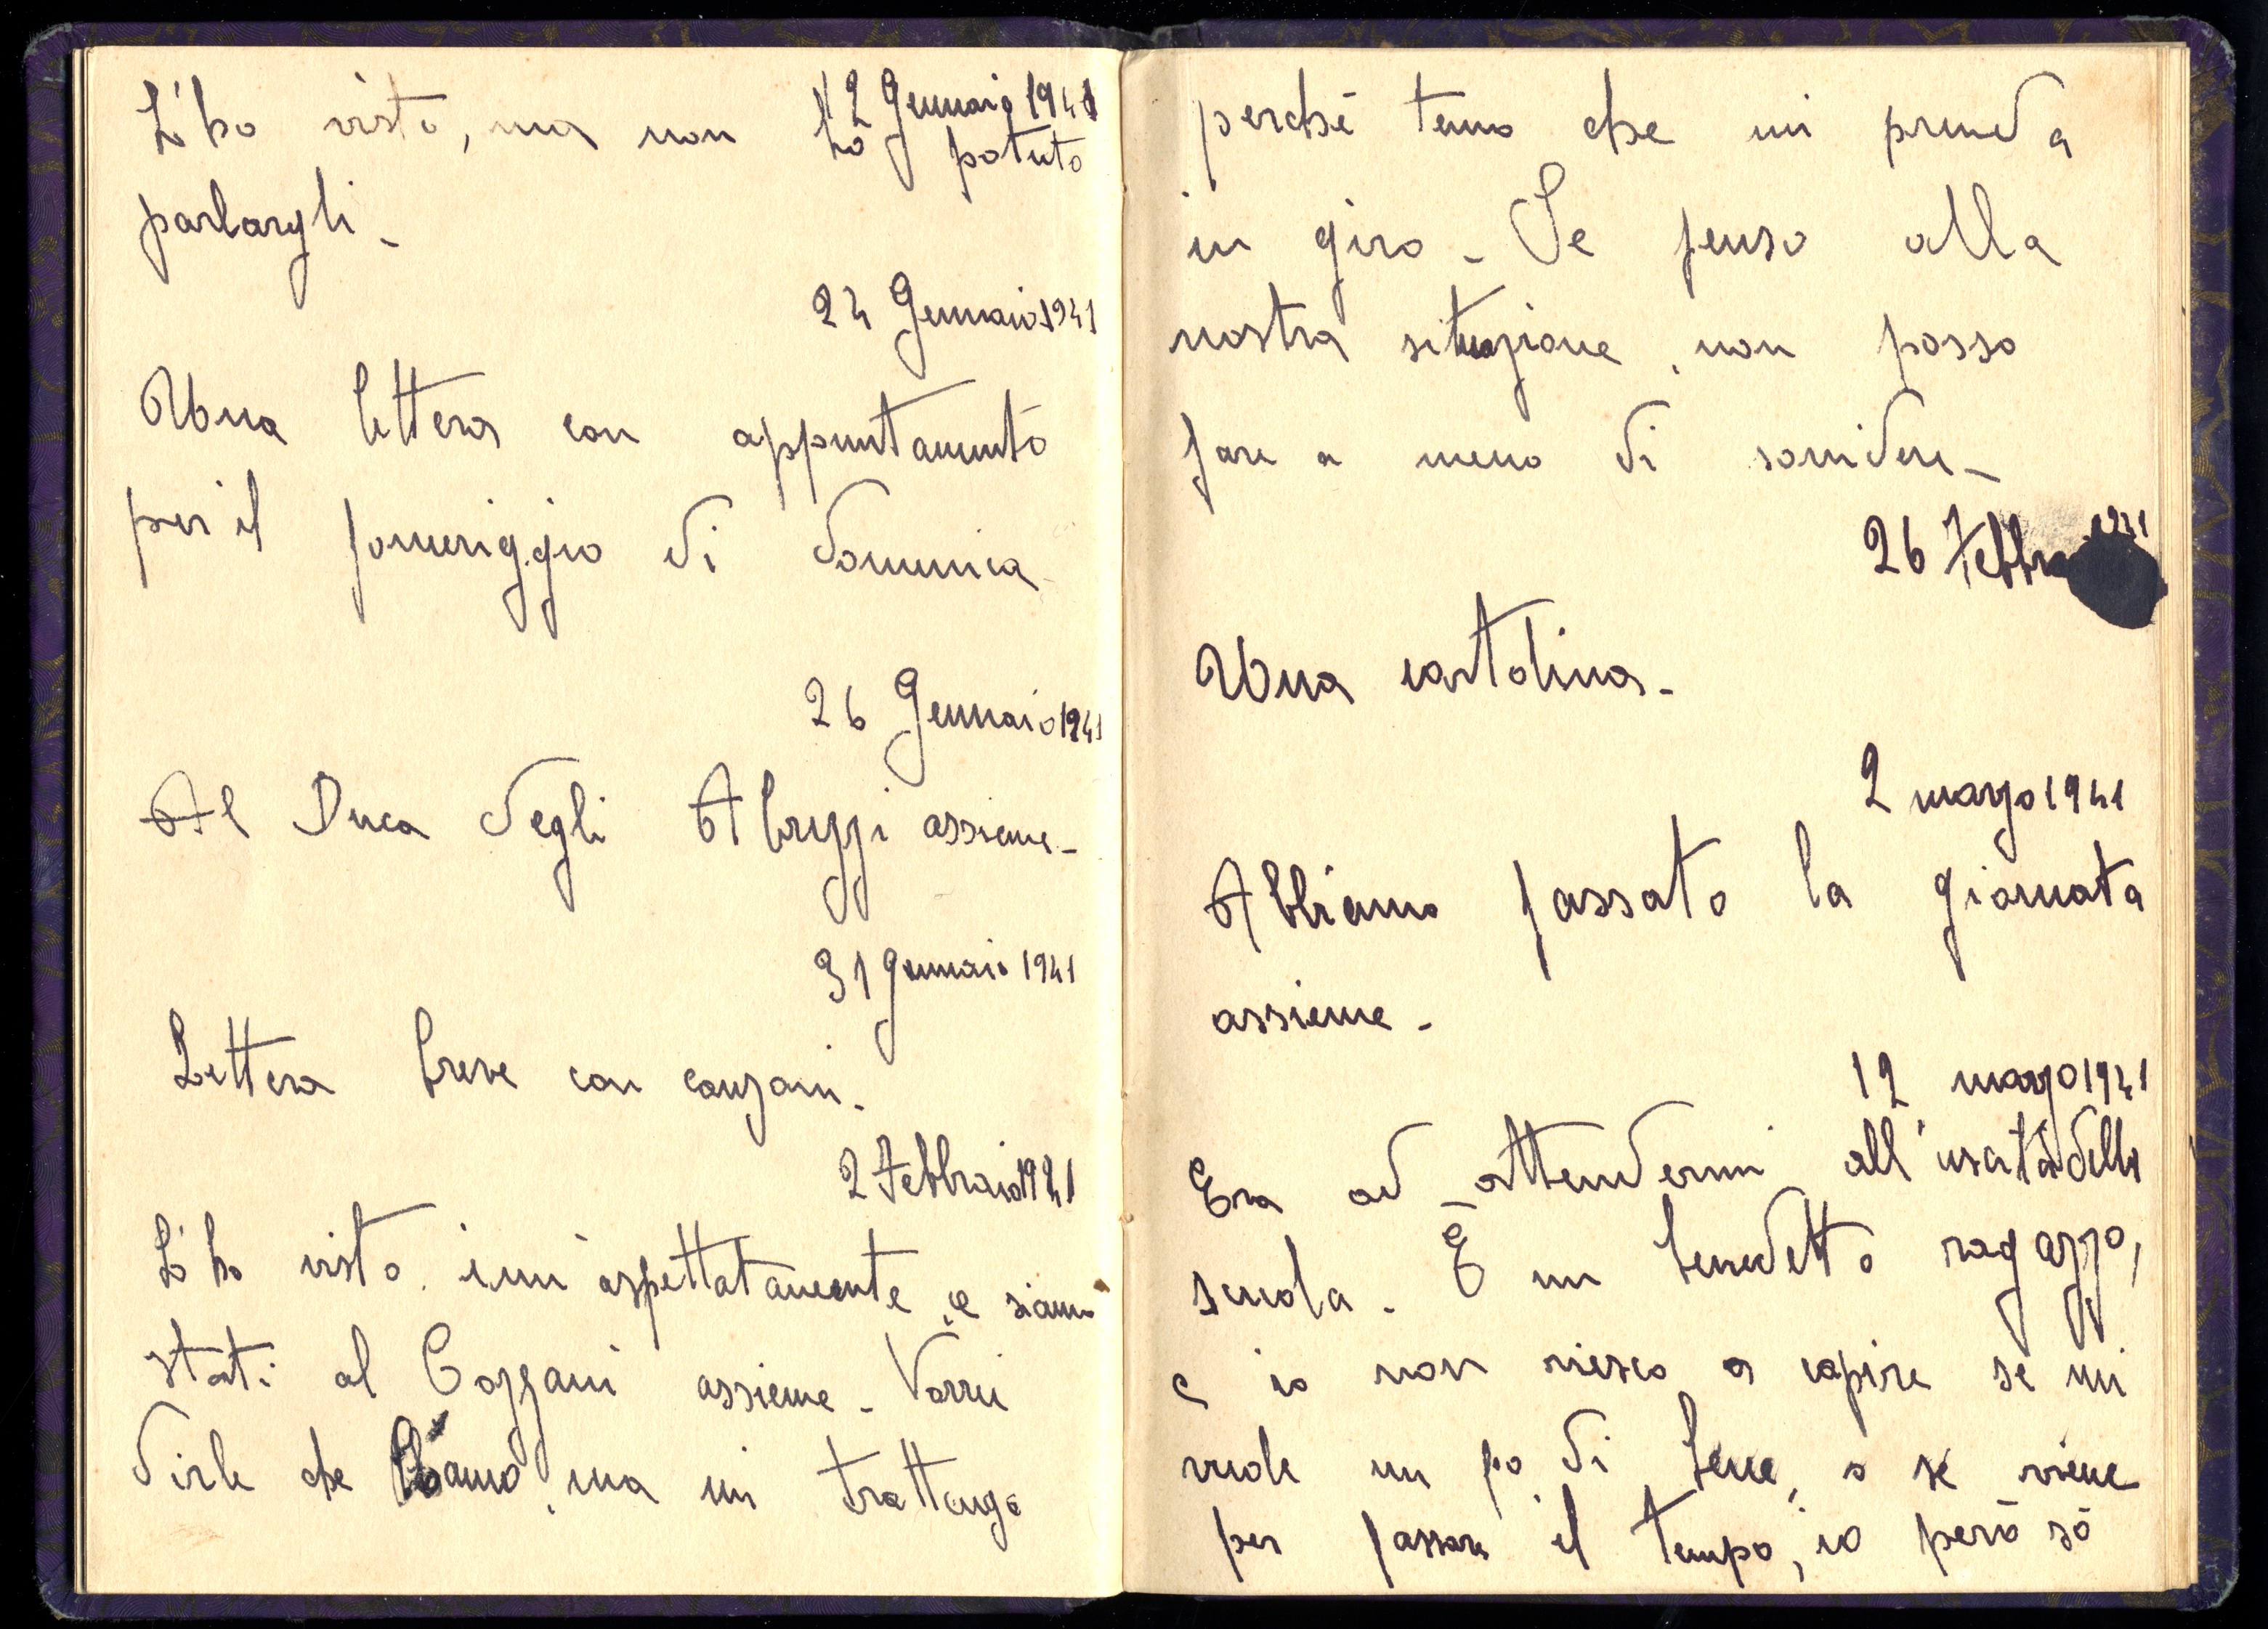 12 Gennaio 1941
L'ho visto, ma non ho potuto
parlargli.
24 Gennaio 1941
Una lettera con appuntamento
per il pomeriggio di domenica
26 Gennaio 1941
Al Duca degli Abruzzi assieme.
31 gennaio 1941
Lettera breve con canzoni.
2 Febbraio 1941
L'ho visto inn'aspettatamente, e siamo
stati al Cozzani assieme. Vorrei
dirle che amo, ma mi trattengo
perchè temo che mi prenda
in giro. Se penso alla
nostra situazione, non posso
fare a meno di sorridere.
26 Febbra 1941
Una cartolina.
2 marzo 1941
Abbiamo passato la giornata
assieme.
12 marzo 1941
Era ad attendermi all'uscita della
scuola. È un benedetto ragazzo,
e io non riesco a capire se mi
vuole un po di bene, o se viene
per passare il tempo, io però sò